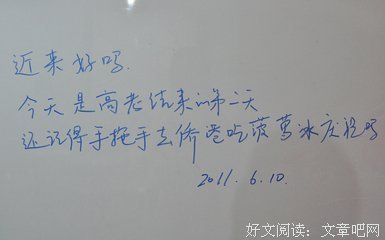 近来好吗.
今天是高考结束的第二天
还记得手拖手去侨港吃菠萝冰庆祝吗
2011.6.10.
好文阅读：文章吧网